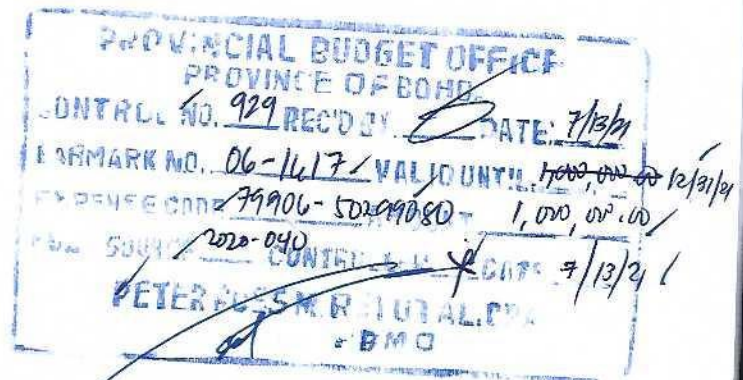 PROVINCIAL BUDGET OFFICE
PROVINCE OF BOHOL
CONTROL NO. 929 REC'D BY DATE: 7/13/21
EARMARK NO. 06-1617 VALID UNTIL 1,000,000.00 12/31/21
EXPENSE CODE 79906-50299080- 1,000,000.00
SOURCE 2020-040 CONTROLLER DATE 7/13/21
PETER ROSS M. RETUTAL, CPA
PBMO